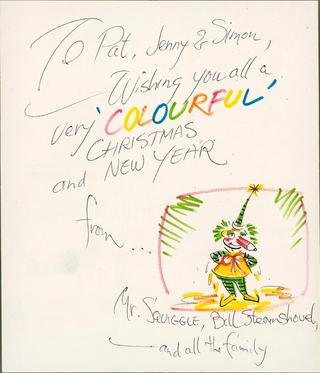 To Pat, Jenny & Simon,
Wishing you all a
very 'COLOURFUL'
CHRISTMAS
and NEW YEAR
from...
Mr. SQUIGGLE, Bill Steamshovel,
and all the family